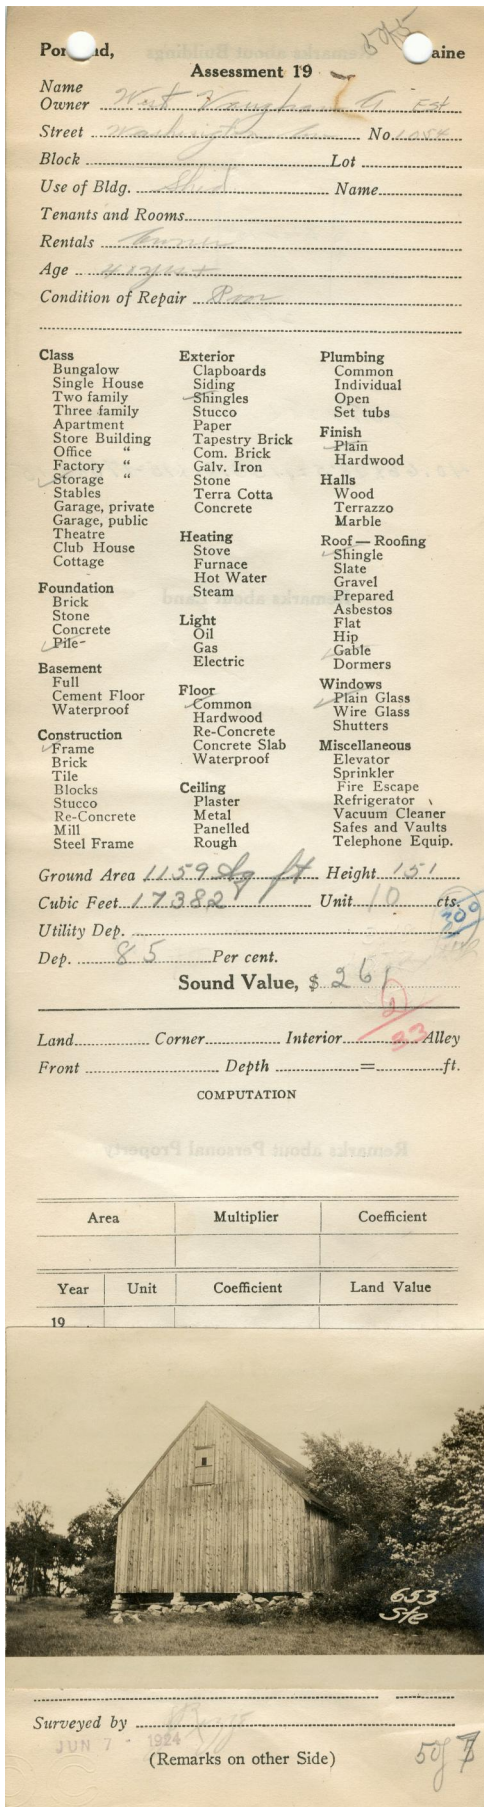 Portland, Maine
5 of 5
Assessment 19
Name
Owner West Vaughan Est
Street Washington Ave No. 1054
Block Lot
Use of Bldg. Shed Name
Tenants and Rooms
Rentals Owner
Age 40 yrs +
Condition of Repair Poor
Class
Bungalow
Single House
Two family
Three family
Apartment
Store Building
Office "
Factory "
Storage "
Stables
Garage, private
Garage, public
Theatre
Club House
Cottage
Foundation
Brick
Stone
Concrete
Pile
Basement
Full
Cement Floor
Waterproof
Construction
Frame
Brick
Tile
Blocks
Stucco
Re-Concrete
Mill
Steel Frame
Exterior
Clapboards
Siding
Shingles
Stucco
Paper
Tapestry Brick
Com. Brick
Galv. Iron
Stone
Terra Cotta
Concrete
Heating
Stove
Furnace
Hot Water
Steam
Light
Oil
Gas
Electric
Floor
Common
Hardwood
Re-Concrete
Concrete Slab
Waterproof
Ceiling
Plaster
Metal
Panelled
Rough
Plumbing
Common
Individual
Open
Set tubs
Finish
Plain
Hardwood
Halls
Wood
Terrazzo
Marble
Roof — Roofing
Shingle
Slate
Gravel
Prepared
Asbestos
Flat
Hip
Gable
Dormers
Windows
Plain Glass
Wire Glass
Shutters
Miscellaneous
Elevator
Sprinkler
Fire Escape
Refrigerator
Vacuum Cleaner
Safes and Vaults
Telephone Equip.
Ground Area 1159 Sq ft Height 151
Cubic Feet 17382 Unit 10 cts.
300
Utility Dep.
Dep. 85 Per cent.
Sound Value, $ 261
2
33
Land Corner Interior Alley
Front Depth = ft.
COMPUTATION
Area Multiplier Coefficient
Year Unit Coefficient Land Value
19
653
Ste
Surveyed by
JUN 7 - 1924
(Remarks on other Side)
5 of 7